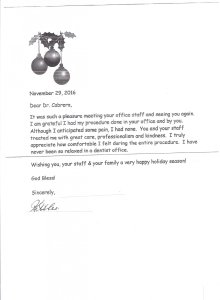 November 29, 2016
Dear Dr. Cabrera,
It was such a pleasure meeting your office staff and seeing you again.
I am grateful I had my procedure done in your office and by you.
Although I anticipated some pain, I had none. You and your staff
treated me with great care, professionalism and kindness. I truly
appreciate how comfortable I felt during the entire procedure. I have
never been so relaxed in a dentist office.
Wishing you, your staff & your family a very happy holiday season!
God Bless!
Sincerely,